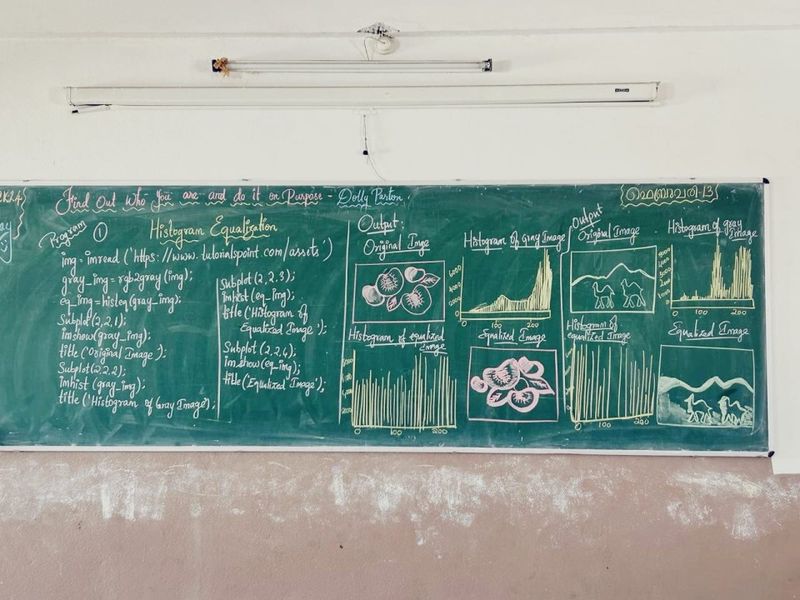 Find Out Who You are and do it on Purpose - Dolly Parton
ഫെബ്രുവരി-13
Program
1
Histogram Equalization
img = imread ('https://www.tutorialspoint.com/assets')
gray_img = rgb2gray (img);
eq_img = histeq (gray_img);
Subplot (2,2,1);
imshow (gray_img);
title ('Original Image');
Subplot (2,2,2);
imhist (gray_img);
title ('Histogram of Gray Image');
Subplot (2,2,3);
imhist (eq_img);
title ('Histogram of
Equalized Image');
Subplot (2,2,4);
imshow (eq_img);
title ('Equalized Image');
Output:
Original Imge
Histogram of Gray Image
0 100 200
Histogram of equalized
Image
0 100 200
Equalized Image
Output
Original Image
Histogram of gray
Image
0 100 200
Histogram of
equalized Image
0 100 200
Equalized Image